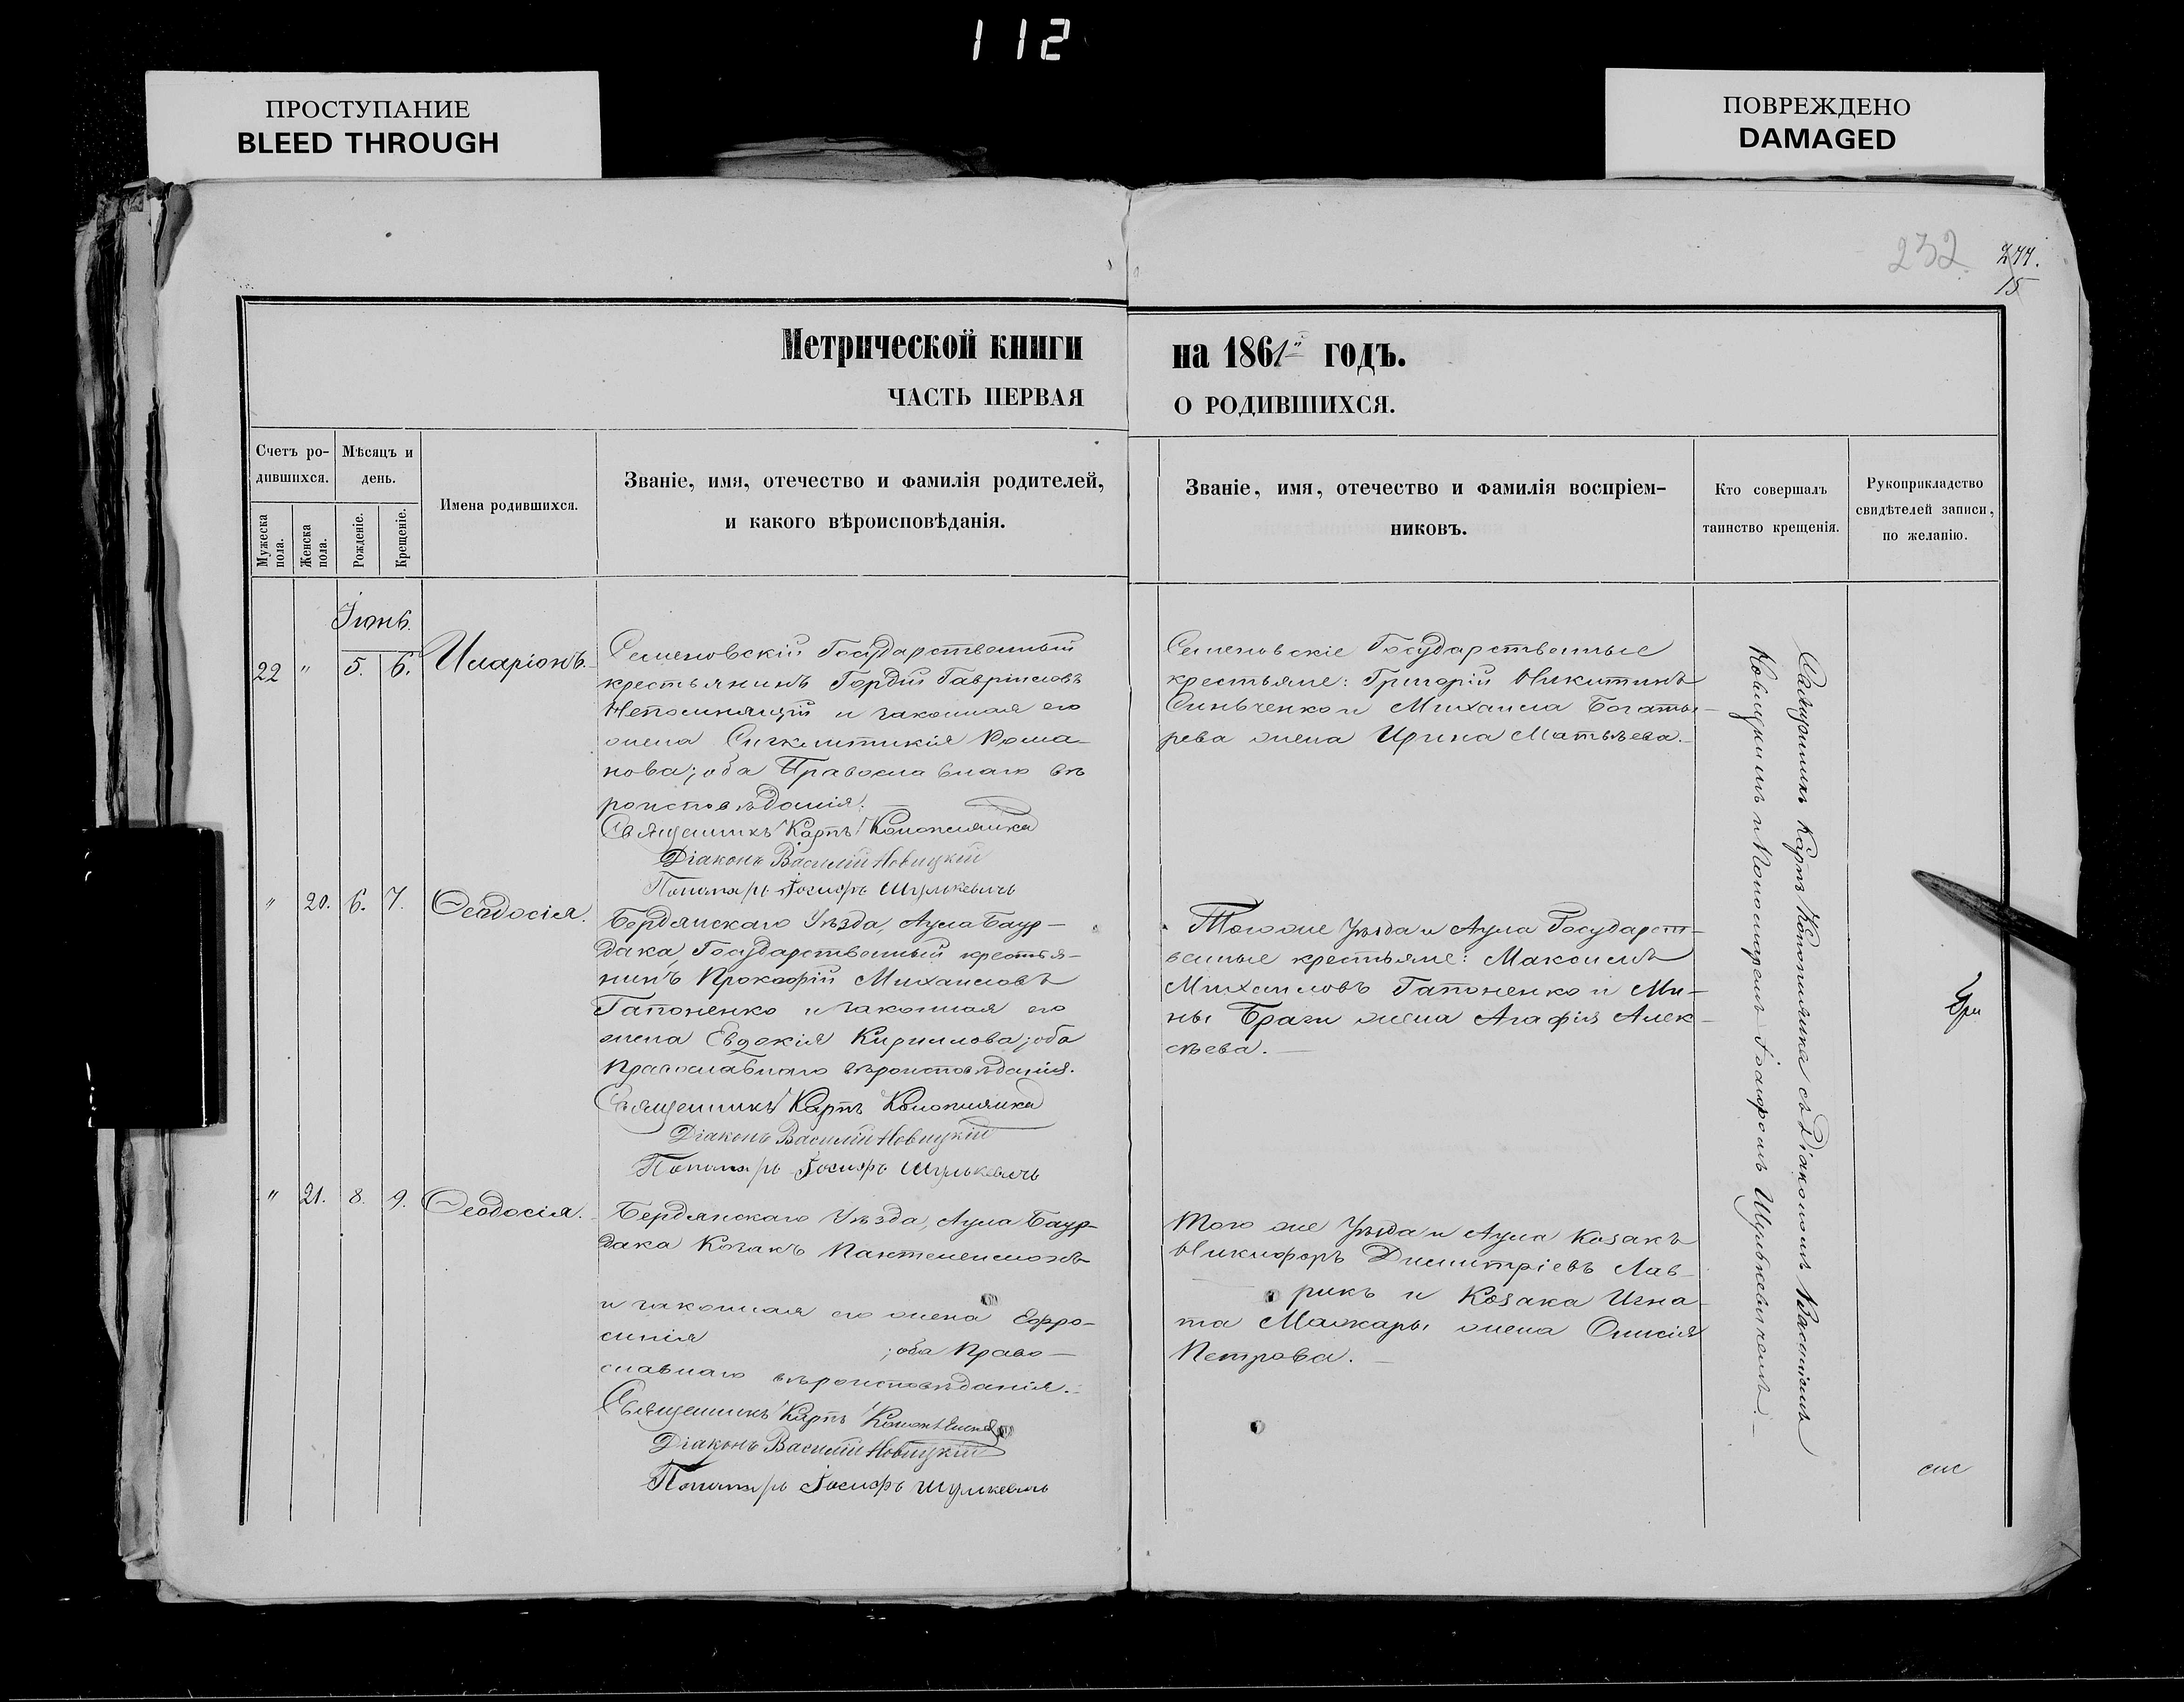 112
ПРОСТУПАНИЕ
BLEED THROUGH
ПОВРЕЖДЕНО
DAMAGED
232.
244.
15
Метрической книги
на 1861 годъ.
ЧАСТЬ ПЕРВАЯ
О РОДИВШИХСЯ.
Счетъ ро-
дившихся.
Мѣсяцъ и
день.
Мужеска
пола.
Женска
пола.
Рожденіе.
Крещеніе.
Имена родившихся.
Званіе, имя, отечество и фамилія родителей,
и какого вѣроисповѣданія.
Званіе, имя, отечество и фамилія воспріем-
никовъ.
Кто совершалъ
таинство крещенія.
Рукоприкладство
свидѣтелей записи,
по желанію.
Іюнь.
22 " 5. 6. Иларіонъ.
Семеновскій Государственный
крестьянинъ Гордій Гавріиловъ
Непомнящій и законная его
жена Сигклитикія Рома-
нова; оба Православнаго вѣ
роисповѣданія.
Священникъ Карпъ Конопляика
Діаконъ Василій Новицкій
Пономарь Іосифъ Шулькевичъ
Семеновскіе Государственные
крестьяне: Григорій Никитинъ
Синьченко и Михаила Богаты-
рева жена Ирина Матѣева.
" 20. 6. 7. Ѳеодосія.
Бердянскаго Уѣзда, Аула Баур-
дака, Государственный крестья-
нинъ Прокофій Михаиловъ
Гапоненко и законная его
жена Евдокія Кириллова; оба
Православнаго вѣроисповѣданія.
Священникъ Карпъ Конопляика
Діаконъ Василій Новицкій
Пономарь Іосифъ Шулькевичъ
Того же Уѣзда и Аула Государст-
венные крестьяне: Максимъ
Михаиловъ Гапоненко и Ми-
ны Браги жена Агафія Алек-
сѣева.
" 21. 8. 9. Ѳеодосія.
Бердянскаго Уѣзда, Аула Баур-
дака Козакъ Пантелеимонъ
и законная его жена Ефро-
синія ; оба Право-
славнаго вѣроисповѣданія.
Священникъ Карпъ
Діаконъ Василій Новицкій
Пономарь Іосифъ Шулькевичъ
Того же Уѣзда и Аула Козакъ
Никифоръ Димитріевъ Лав-
рикъ и Козака Игна-
та Мажары жена Онисія
Петрова.
Священникъ Карпъ Конопляика съ Діакономъ Василіемъ
Новицкимъ и Пономаремъ Іосифомъ Шулькевичемъ.